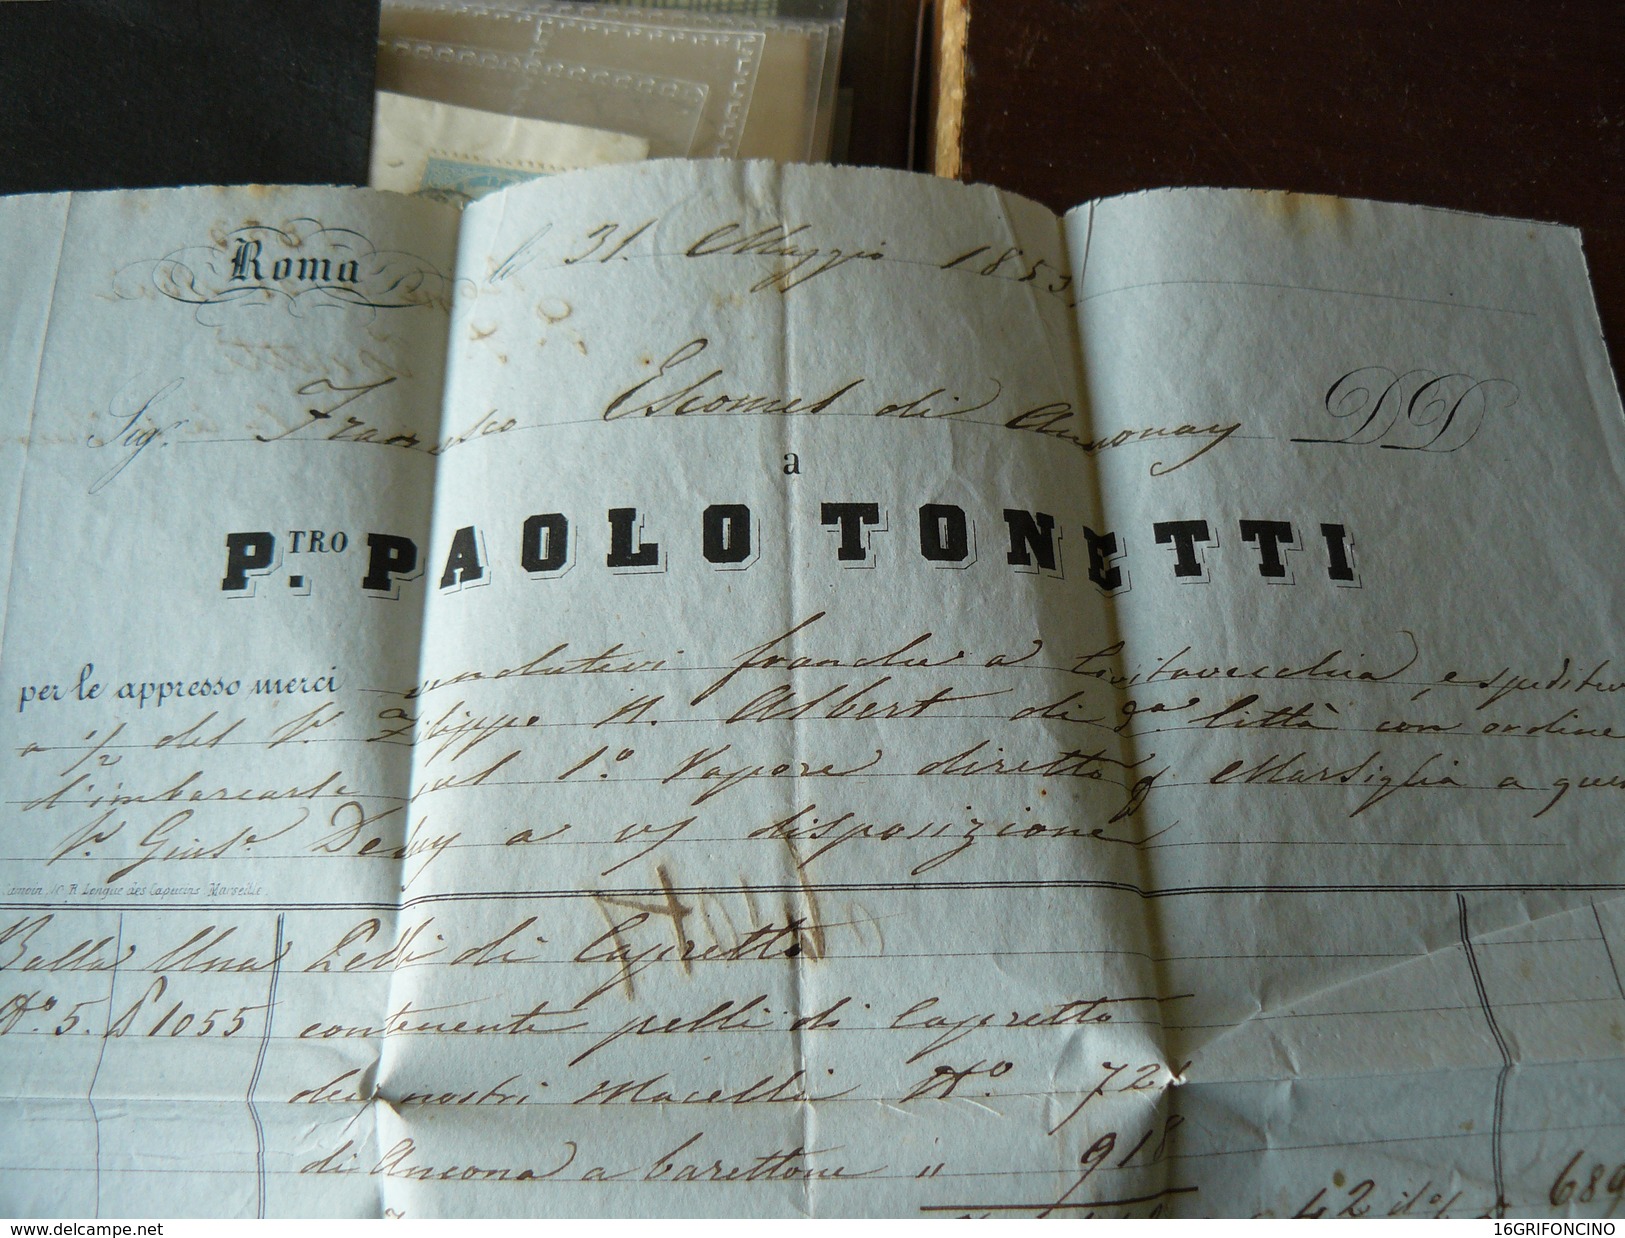 Roma
li 31. Maggio 1853.
Sigr. Francesco Escomel di Annonay DD
a
P.TRO PAOLO TONETTI
per le appresso merci vendutevi franche a Civitavecchia, e spedite
a 1/2 del Sr. Filippo A. Albert di da. Città con ordine
d'imbarcarle sul 1.o Vapore diretto Marsiglia a
Sr. Gius.e a vs disposizione
R. Longue des Capucins Marseille.
Balla Una Pelli di Capretto
No. 5. 1055 contenente pelli di Capretto
dei nostri Macelli No. 721
di Ancona a barettone " 918
42 689
www.delcampe.net
16GRIFONCINO